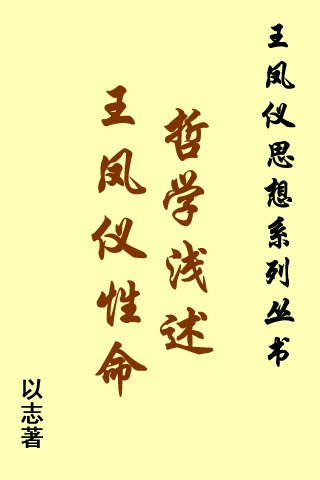 王凤仪思想系列丛书
王凤仪性命
哲学浅述
以志著